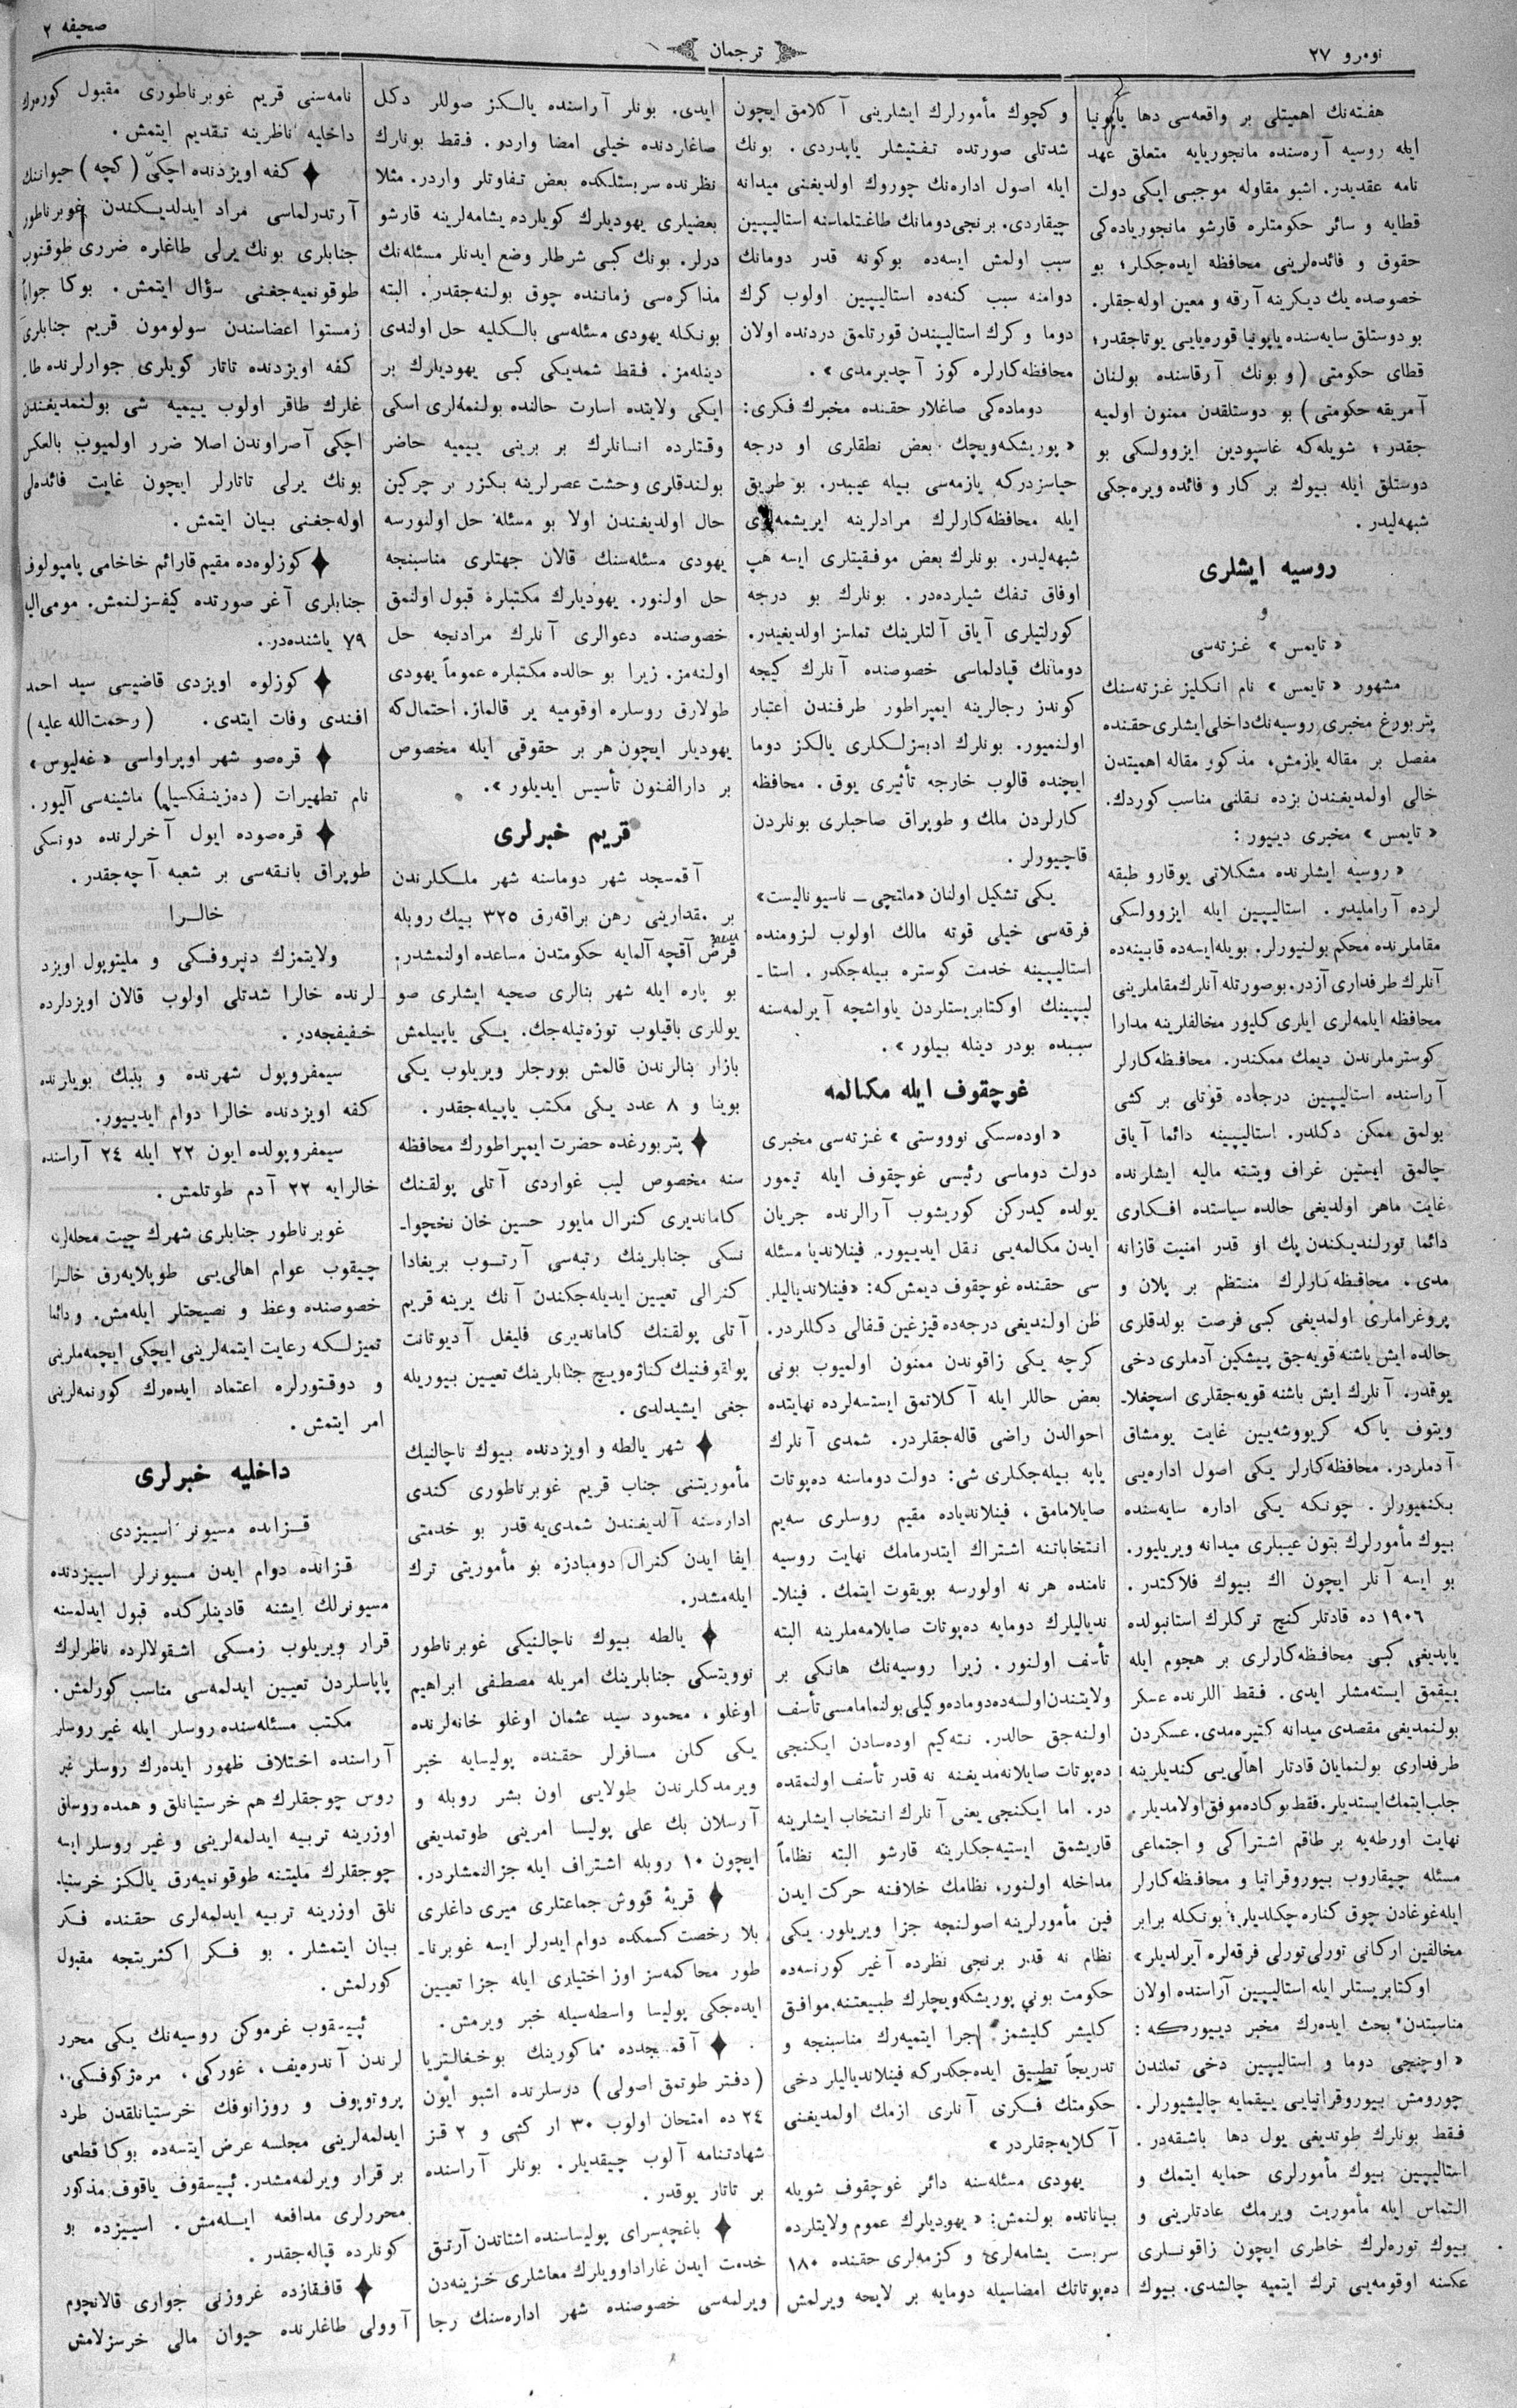 نومرو ٢٧
ترجمان
صحیفه ٢
هفته‌نك اهمیتلی بر واقعه‌سی دها یاپونیا
ایله روسیه آره‌سنده مانجوریایه متعلق عهد
نامه عقدیدر. اشبو مقاوله موجبی ایكی دولت
قطایه و سائر حكومتلره قارشو مانجوریاده‌كی
حقوق و فائده‌لرینی محافظه ایده‌جكلر؛ بو
خصوصده یك دیكرینه آرقه و معین اوله‌جقلر.
بو دوستلق سایه‌سنده یاپونیا قوره‌یایی یوتاجقدر؛
قطای حكومتی (و بونك آرقاسنده بولنان
آمریقه حكومتی) بو دوستلقدن ممنون اولمیه
جقدر؛ شویله‌كه غاسپودین ایزوولسكی بو
دوستلق ایله بیوك بر كار و فائده ویره‌جكی
شبهه‌لیدر.
روسیه ایشلری
و
«تایمس» غزته‌سی
مشهور «تایمس» نام انكلیز غزته‌سنك
پتربورغ مخبری روسیه‌نك داخلی ایشلری حقنده
مفصل بر مقاله یازمش، مذكور مقاله اهمیتدن
خالی اولمدیغندن بزده نقلنی مناسب كوردك.
«تایمس» مخبری دییور:
«روسیه ایشلرنده مشكلاتی یوقارو طبقه
لرده آرامالیدر. استالیپین ایله ایزوولسكی
مقاملرنده محكم بولنیورلر. بویله‌ایسه‌ده قابینه‌ده
آنلرك طرفداری آزدر. بوصورتله آنلرك مقاملرینی
محافظه ایلمه‌لری ایلری كلیور مخالفلرینه مدارا
كوسترملرندن دیمك ممكندر. محافظه‌كارلر
آراسنده استالیپین درجه‌ده قوتلی بر كشی
بولمق ممكن دكلدر. استالیپینه دائما آیاق
چالمق ایستین غراف ویتته مالیه ایشلرنده
غایت ماهر اولدیغی حالده سیاستده افكاری
دائما تورلندیكندن پك او قدر امنیت قازانه
مدی. محافظه‌كارلرك منتظم بر پلان و
پروغراملری اولمدیغی كبی فرصت بولدقلری
حالده ایش باشنه قویه‌جق پیشكین آدملری دخی
یوقدر. آنلرك ایش باشنه قویه‌جقلری اسچغلا-
ویتوف یاكه كریووشه‌یین غایت یومشاق
آدملردر. محافظه‌كارلر یكی اصول اداره‌یی
بكنمیورلر. چونكه یكی اداره سایه‌سنده
بیوك مأمورلرك بتون عیبلری میدانه ویریلیور.
بو ایسه آنلر ایچون اك بیوك فلاكتدر.
١٩٠٦ ده قادتلر كنج تركلرك استانبولده
یاپدیغی كبی محافظه‌كارلری بر هجوم ایله
ییقمق ایسته‌مشلر ایدی. فقط اللرنده عسكر
بولنمدیغی مقصدی میدانه كتیره‌مدی. عسكردن
طرفداری بولنمایان قادتلر اهالی‌یی كندیلرینه
جلب ایتمك ایستدیلر. فقط بوكاده موفق اولامدیلر.
نهایت اورطه‌یه بر طاقم اشتراكی و اجتماعی
مسئله چیقاروب بیوروقراتیا و محافظه‌كارلر
ایله‌غوغادن چوق كناره چكلدیلر؛ بونكله برابر
مخالفین اركانی تورلی‌تورلی فرقه‌لره آیرلدیلر»
اوكتابریستلر ایله استالیپین آراسنده اولان
مناسبتدن بحث ایده‌رك مخبر دییوركه:
«اوچنجی دوما و استالیپین دخی تملندن
چورومش بیوروقراتیایی ییقمایه چالیشیورلر.
فقط بونلرك طوتدیغی یول دها باشقه‌در.
استالیپین بیوك مأمورلری حمایه ایتمك و
التماس ایله مأموریت ویرمك عادتلرینی و
بیوك توره‌لرك خاطری ایچون زاقونلری
عكسنه اوقومه‌یی ترك ایتمیه چالشدی. بیوك
و كچوك مأمورلرك ایشلرینی آكلامق ایچون
شدتلی صورتده تفتیشلر یاپدردی. بونك
ایله اصول اداره‌نك چوروك اولدیغنی میدانه
چیقاردی. برنجی‌دومانك طاغتلماسنه استالیپین
سبب اولمش ایسه‌ده بوكونه قدر دومانك
دوامنه سبب كنه‌ده استالیپین اولوب كرك
دوما و كرك استالیپندن قورتلمق دردنده اولان
محافظه‌كارلره كوز آچدیرمدی».
دوماده‌كی صاغلار حقنده مخبرك فكری:
«پوریشكه‌ویچك بعض نطقلری او درجه
حیاسزدركه یازمه‌سی بیله عیبدر. بو طریق
ایله محافظه‌كارلرك مرادلرینه ایریشمه‌لری
شبهه‌لیدر. بونلرك بعض موفقیتلری ایسه هپ
اوفاق تفك شیلرده‌در. بونلرك بو درجه
كورلتیلری آیاق آلتلرینك تملسز اولدیغیدر.
دومانك قپادلماسی خصوصنده آنلرك كیجه
كوندز رجالرینه ایمپراطور طرفندن اعتبار
اولنمیور. بونلرك ادبسزلكلری یالكز دوما
ایچنده قالوب خارجه تأثیری یوق. محافظه
كارلردن ملك و طوپراق صاحبلری بونلردن
قاچیورلر.
یكی تشكیل اولنان «ملتچی – ناسیونالیست»
فرقه‌سی خیلی قوته مالك اولوب لزومنده
استالیپینه خدمت كوستره بیله‌جكدر. استا-
لیپینك اوكتابریستلردن یاواشچه آیرلمه‌سنه
سببده بودر دینله بیلور».
غوچقوف ایله مكالمه
«اوده‌سسكی نوووستی» غزته‌سی مخبری
دولت دوماسی رئیسی غوچقوف ایله تیمور
یولده كیدركن كوریشوب آرالرنده جریان
ایدن مكالمه‌یی نقل ایدییور. فینلاندیا مسئله
سی حقنده غوچقوف دیمش‌كه: «فینلاندیالیلر
ظن اولندیغی درجه‌ده قیزغین قفالی دكللردر.
كرچه یكی زاقوندن ممنون اولمیوب بونی
بعض حاللر ایله آكلاتمق ایستسه‌لرده نهایتده
احوالدن راضی قاله‌جقلردر. شمدی آنلرك
یاپه بیله‌جكلری شی: دولت دوماسنه ده‌پوتات
صایلامامق، فینلاندیاده مقیم روسلری سه‌یم
انتخاباتنه اشتراك ایتدرمامك نهایت روسیه
نامنده هر نه اولورسه بویقوت ایتمك. فینلا-
ندیالیلرك دومایه ده‌پوتات صایلامه‌ملرینه البته
تأسف اولنور. زیرا روسیه‌نك هانكی بر
ولایتندن‌اولسه‌ده‌دوماده‌وكیلی‌بولنمامامسی‌تأسف
اولنه‌جق حالدر. نته‌كیم اوده‌سادن ایكنجی
ده‌پوتات صایلانه‌مدیغنه نه قدر تأسف اولنمقده
در. اما ایكنجی یعنی آنلرك انتخاب ایشلرینه
قاریشمق ایستیه‌جكلرینه قارشو البته نظاماً
مداخله اولنور، نظامك خلافنه حركت ایدن
فین مأمورلرینه اصولنجه جزا ویریلور. یكی
نظام نه قدر برنجی نظرده آغیر كورنسه‌ده
حكومت بونی پوریشكه‌ویچلرك طبیعتنه موافق
كلیشر كلیشمز اجرا ایتمیه‌رك مناسبنجه و
تدریجاً تطبیق ایده‌جكدركه فینلاندیالیلر دخی
حكومتك فكری آنلری ازمك اولمدیغنی
آكلایه‌جقلردر»
یهودی مسئله‌سنه دائر غوچقوف شویله
بیاناتده بولنمش: «یهودیلرك عموم ولایتلرده
سربست یشامه‌لری و كزمه‌لری حقنده ١٨٠
ده‌پوتاتك امضاسیله دومایه بر لایحه ویرلمش
ایدی. بونلر آراسنده یالكز صوللر دكل
صاغاردنده خیلی امضا واردو. فقط بونارك
نظرنده سربستلكده بعض تفاوتلر واردر. مثلا
بعضیلری یهودیلرك كویلرده یشامه‌لرینه قارشو
درلر. بونك كبی شرطلر وضع ایدنلر مسئله‌نك
مذاكره‌سی زماننده چوق بولنه‌جقدر. البته
بونكله یهودی مسئله‌سی بالكلیه حل اولندی
دینله‌مز. فقط شمدیكی كبی یهودیلرك بر
ایكی ولایتده اسارت حالنده بولنمه‌لری اسكی
وقتلرده انسانلرك بر برینی ییمیه حاضر
بولندقلری وحشت عصرلرینه بكزر بر چركین
حال اولدیغندن اولا بو مسئله حل اولنورسه
یهودی مسئله‌سنك قالان جهتلری مناسبنجه
حل اولنور. یهودیلرك مكتبلره قبول اولنمق
خصوصنده دعوالری آنلرك مرادنجه حل
اولنه‌مز. زیرا بو حالده مكتبلره عموماً یهودی
طولارق روسلره اوقومیه یر قالماز. احتمال‌كه
یهودیلر ایچون هر بر حقوقی ایله مخصوص
بر دارالفنون تأسیس ایدیلور».
قریم خبرلری
آقمسجد شهر دوماسنه شهر ملكلرندن
بر مقدارینی رهن براقه‌رق ٣٢٥ بیك روبله
قرض آقچه آلمایه حكومتدن مساعده اولنمشدر.
بو پاره ایله شهر بنالری صحیه ایشلری صو
یوللری باقیلوب توزه‌تیله‌جك. یكی یاپیلمش
بازار بنالرندن قالمش بورجلر ویریلوب یكی
بوینا و ٨ عدد یكی مكتب یاپیله‌جقدر.
✦ پتربورغده حضرت ایمپراطورك محافظه
سنه مخصوص لیب غواردی آتلی پولقنك
كاماندیری كنرال مایور حسین خان نخچوا-
نسكی جنابلرینك رتبه‌سی آرتوب بریغادا
كنرالی تعیین ایدیله‌جكندن آنك یرینه قریم
آتلی پولقنك كاماندیری فلیغل آدیوتانت
پولقوفنیك كناژه‌ویچ جنابلرینك تعیین بیوریله
جغی ایشیدلدی.
✦ شهر یالطه و اویزدنده بیوك ناچالنیك
مأموریتنی جناب قریم غوبرناطوری كندی
اداره‌سنه آلدیغندن شمدی‌یه قدر بو خدمتی
ایفا ایدن كنرال دومبادزه بو مأموریتی ترك
ایله‌مشدر.
✦ یالطه بیوك ناچالنیكی غوبرناطور
نوویتسكی جنابلرینك امریله مصطفی ابراهیم
اوغلو، محمود سید عثمان اوغلو خانه‌لرنده
یكی كلن مسافرلر حقنده پولیسایه خبر
ویرمدكلرندن طولایی اون بشر روبله و
آرسلان بك علی پولیسا امرینی طوتمدیغی
ایچون ١٠ روبله اشتراف ایله جزالنمشلردر.
✦ قریۀ قووش جماعتلری میری داغلری
بلا رخصت كسمكده دوام ایدرلر ایسه غوبرنا-
طور محاكمه‌سز اوز اختیاری ایله جزا تعیین
ایده‌جكی پولیسا واسطه‌سیله خبر ویرمش.
✦ آقمسجدده ماكورینك بوخغالتریا
(دفتر طوتمق اصولی) درسلرنده اشبو ایون
٢٤ ده امتحان اولوب ٣٠ ار كشی و ٢ قز
شهادتنامه آلوب چیقدیلر. بونلر آراسنده
بر تاتار یوقدر.
✦ باغچه‌سرای پولیساسنده اشتاتدن آرتق
خدمت ایدن غاراداوویلرك معاشلری خزینه‌دن
ویرلمه‌سی خصوصنده شهر اداره‌سنك رجا
نامه‌سنی قریم غوبرناطوری مقبول كوره‌رك
داخلیه ناظرینه تقدیم ایتمش.
✦ كفه اویزدنده اچكی (كچه) حیواننك
آرتدرلماسی مراد ایدلدیكندن غوبرناطور
جنابلری بونك یرلی طاغلره ضرری طوقنوب
طوقونمیه‌جغنی سؤال ایتمش. بوكا جواباً
زمستوا اعضاسندن سولومون قریم جنابلری
كفه اویزدنده تاتار كویلری جوارلرنده طا-
غلرك طاقر اولوب ییمیه شی بولنمدیغندن
اچكی آصراوندن اصلا ضرر اولمیوب بالعكس
بونك یرلی تاتارلر ایچون غایت فائده‌لی
اوله‌جغنی بیان ایتمش.
✦ كوزلوه‌ده مقیم قارائم خاخامی پامپولوف
جنابلری آغر صورتده كیفسزلنمش. مومی‌الیه
٧٩ یاشنده‌در.
✦ كوزلوه اویزدی قاضیسی سید احمد
افندی وفات ایتدی. (رحمت‌الله علیه)
✦ قره‌صو شهر اوپراواسی «غه‌لیوس»
نام تطهیرات (ده‌زینفكسیا) ماشینه‌سی آلیور.
✦ قره‌صوده ایول آخرلرنده دونسكی
طوپراق بانقه‌سی بر شعبه آچه‌جقدر.
خالرا
ولایتمزك دنپروفسكی و ملیتوپول اویزد
لرنده خالرا شدتلی اولوب قالان اویزدلرده
خفیفجه‌در.
سیمفروپول شهرنده و بلبك بویلرنده
كفه اویزدنده خالرا دوام ایدییور.
سیمفروپولده ایون ٢٢ ایله ٢٤ آراسنده
خالرایه ٢٢ آدم طوتلمش.
غوبرناطور جنابلری شهرك چیت محله‌لرینه
چیقوب عوام اهالی‌یی طوپلایه‌رق خالرا
خصوصنده وعظ و نصیحتلر ایله‌مش. و دائما
تمیزلكه رعایت ایتمه‌لرینی ایچكی ایچمه‌ملرینی
و دوقتورلره اعتماد ایده‌رك كورنمه‌لرینی
امر ایتمش.
داخلیه خبرلری
قزانده مسیونر اسییزدی
قزانده دوام ایدن مسیونرلر اسییزدنده
مسیونرلك ایشنه قادینلركده قبول ایدلمسنه
قرار ویریلوب زمسكی اشقولالرده ناظرلرك
پاپاسلردن تعیین ایدلمه‌سی مناسب كورلمش.
مكتب مسئله‌سنده روسلر ایله غیر روسلر
آراسنده اختلاف ظهور ایده‌رك روسلر غیر
روس چوجقلرك هم خرستیانلق و همده روسلق
اوزرینه تربیه ایدلمه‌لرینی و غیر روسلر ایسه
چوجقلرك ملیتنه طوقونمیه‌رق یالكز خرستیا-
نلق اوزرینه تربیه ایدلمه‌لری حقنده فكر
بیان ایتمشلر. بو فكر اكثریتجه مقبول
كورلمش.
ئپیسقوپ غرموكن روسیه‌نك یكی محرر
لرندن آندره‌یف، غوركی، مره‌ژكوفسكی،
پروتوپوف و روزانوفك خرستیانلقدن طرد
ایدلمه‌لرینی مجلسه عرض ایتسه‌ده بوكا قطعی
بر قرار ویرلمه‌مشدر. ئپیسقوف یاقوف مذكور
محررلری مدافعه ایله‌مش. اسییزده بو
كونلرده قپاله‌جقدر.
✦ قافقازده غروزنی جواری قالانچوم
آوولی طاغلرنده حیوان مالی خرسزلامش